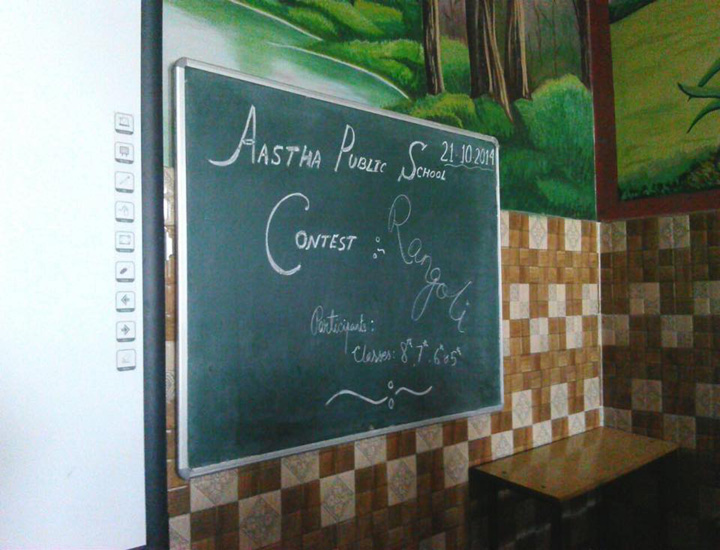 AASTHA PUBLIC SCHOOL 21.10.2014
CONTEST :- Rangoli
Participants:
Classes: 8th, 7th, 6th & 5th